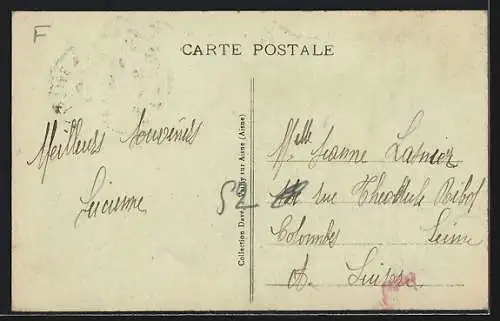 F
CARTE POSTALE
Meilleurs Souvenirs
Lucienne
Collection Dave, Vailly sur Aisne (Aisne)
Melle Jeanne Lasnier
52 rue Théodule Ribot
Colombes Seine